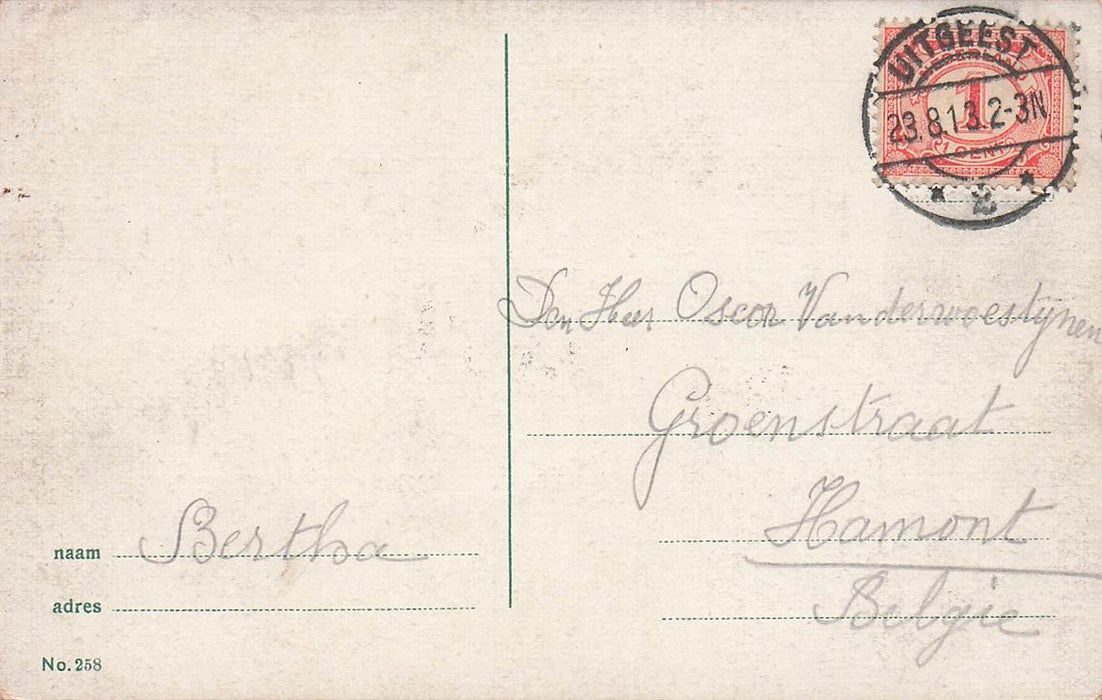 UITGEEST
23.8.13.2-3N
1
1 CENT
Den Heer Oscar Vanderwoestijnen
Groenstraat
Hamont
België
naam Bertha
adres
No. 258